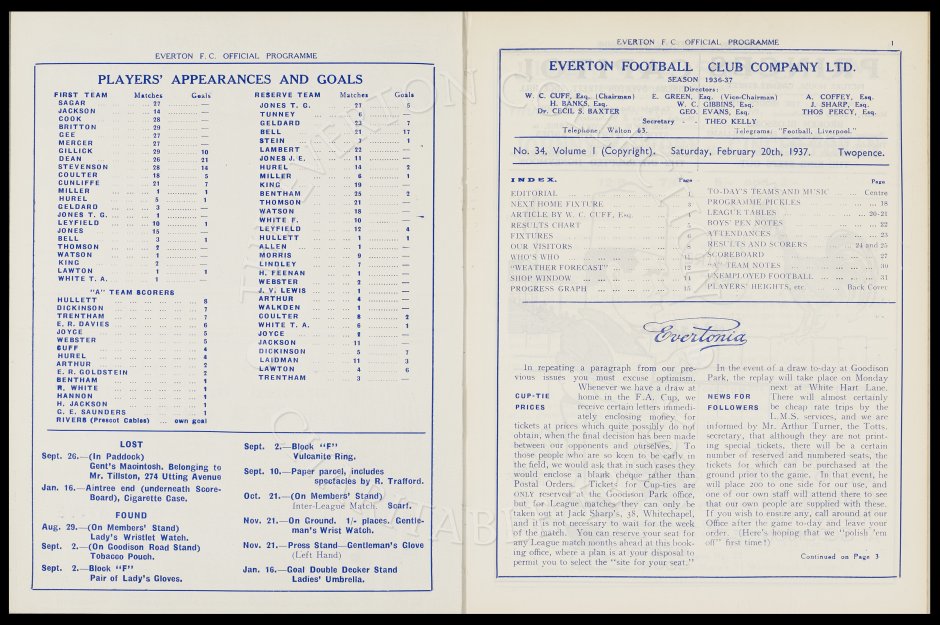 EVERTON F.C. OFFICIAL PROGRAMME
PLAYERS' APPEARANCES AND GOALS
FIRST TEAM Matches Goals
SAGAR 27 —
JACKSON 14 —
COOK 28 —
BRITTON 29 —
GEE 27 —
MERCER 27 —
GILLICK 29 10
DEAN 26 21
STEVENSON 28 14
COULTER 18 5
CUNLIFFE 21 7
MILLER 1 1
HUREL 5 1
GELDARD 3 —
JONES T. G. 1 —
LEYFIELD 10 1
JONES 15 —
BELL 3 1
THOMSON 2 —
WATSON 1 —
KING 2 —
LAWTON 1 1
WHITE T. A. 1 —
"A" TEAM SCORERS
HULLETT 8
DICKINSON 7
TRENTHAM 7
E. R. DAVIES 6
JOYCE 5
WEBSTER 5
CUFF 4
HUREL 4
ARTHUR 2
E. R. GOLDSTEIN 2
BENTHAM 1
R. WHITE 1
HANNON 1
H. JACKSON 1
G. E. SAUNDERS 1
RIVERS (Prescot Cables) ... own goal
RESERVE TEAM Matches Goals
JONES T. G. 21 5
TUNNEY 6 —
GELDARD 23 7
BELL 21 17
STEIN 1
LAMBERT 22 —
JONES J. E. 11 —
HUREL 14 2
MILLER 6 1
KING 19 —
BENTHAM 25 2
THOMSON 21 —
WATSON 18 —
WHITE F. 10 —
LEYFIELD 12 4
HULLETT 1 1
ALLEN 1 —
MORRIS 9 —
LINDLEY 7 —
H. FEENAN 1 —
WEBSTER 2 —
J. V. LEWIS 1 —
ARTHUR 4 —
WALKDEN 1 —
COULTER 8 2
WHITE T. A. 6 1
JOYCE —
JACKSON 11 —
DICKINSON 5 7
LAIDMAN 11 3
LAWTON 4 6
TRENTHAM 3 —
LOST
Sept. 26.—(In Paddock)
Gent's Macintosh. Belonging to
Mr. Tillston, 274 Utting Avenue
Jan. 16.—Aintree end (underneath Score-
Board), Cigarette Case.
FOUND
Aug. 29.—(On Members' Stand)
Lady's Wristlet Watch.
Sept. 2.—(On Goodison Road Stand)
Tobacco Pouch.
Sept. 2.—Block "F"
Pair of Lady's Gloves.
Sept. 2.—Block "F"
Vulcanite Ring.
Sept. 10.—Paper parcel, includes
spectacles by R. Trafford.
Oct. 21.—(On Members' Stand)
Inter-League Match. Scarf.
Nov. 21.—On Ground. 1/- places. Gentle-
man's Wrist Watch.
Nov. 21.—Press Stand—Gentleman's Glove
(Left Hand)
Jan. 16.—Goal Double Decker Stand
Ladies' Umbrella.
EVERTON F.C. OFFICIAL PROGRAMME 1
EVERTON FOOTBALL CLUB COMPANY LTD.
SEASON 1936-37
Directors:
W. C. CUFF, Esq. (Chairman) E. GREEN, Esq. (Vice-Chairman) A. COFFEY, Esq.
H. BANKS, Esq. W. C. GIBBINS, Esq. J. SHARP, Esq.
Dr. CECIL S. BAXTER GEO. EVANS, Esq. THOS PERCY, Esq.
Secretary - - THEO KELLY
Telephone, Walton 65. Telegrams: "Football, Liverpool."
No. 34, Volume 1 (Copyright). Saturday, February 20th, 1937. Twopence.
INDEX. Page
EDITORIAL 1
NEXT HOME FIXTURE 3
ARTICLE BY W. C. CUFF, Esq. 4
RESULTS CHART 5
FIXTURES 6
OUR VISITORS 8
WHO'S WHO 11
"WEATHER FORECAST" 12
SHOP WINDOW 14
PROGRESS GRAPH 15
Page
TO-DAY'S TEAMS AND MUSIC Centre
PROGRAMME PICKLES 18
LEAGUE TABLES 20-21
BOYS' PEN NOTES 22
ATTENDANCES 23
RESULTS AND SCORERS 24 and 25
SCOREBOARD 27
"A" TEAM NOTES 30
UNEMPLOYED FOOTBALL 31
PLAYERS' HEIGHTS, etc. Back Cover
Evertonia
In repeating a paragraph from our pre-
vious issues you must excuse optimism.
Whenever we have a draw at
CUP-TIE home in the F.A. Cup, we
PRICES receive certain letters immedi-
ately enclosing money for
tickets at prices which quite possibly do not
obtain, when the final decision has been made
between our opponents and ourselves. To
those people who are so keen to be early in
the field, we would ask that in such cases they
would enclose a blank cheque rather than
Postal Orders. Tickets for Cup-ties are
ONLY reserved at the Goodison Park office,
but for League matches they can only be
taken out at Jack Sharp's, 38, Whitechapel,
and it is not necessary to wait for the week
of the match. You can reserve your seat for
any League match months ahead at this book-
ing office, where a plan is at your disposal to
permit you to select the "site for your seat."
In the event of a draw to-day at Goodison
Park, the replay will take place on Monday
next at White Hart Lane.
NEWS FOR There will almost certainly
FOLLOWERS be cheap rate trips by the
L.M.S. services, and we are
informed by Mr. Arthur Turner, the Totts.
secretary, that although they are not print-
ing special tickets, there will be a certain
number of reserved and numbered seats, the
tickets for which can be purchased at the
ground prior to the game. In that event, he
will place 200 to one side for our use, and
one of our own staff will attend there to see
that our own people are supplied with these.
If you wish to ensure any, call around at our
Office after the game to-day and leave your
order. (Here's hoping that we "polish 'em
off" first time!)
Continued on Page 3